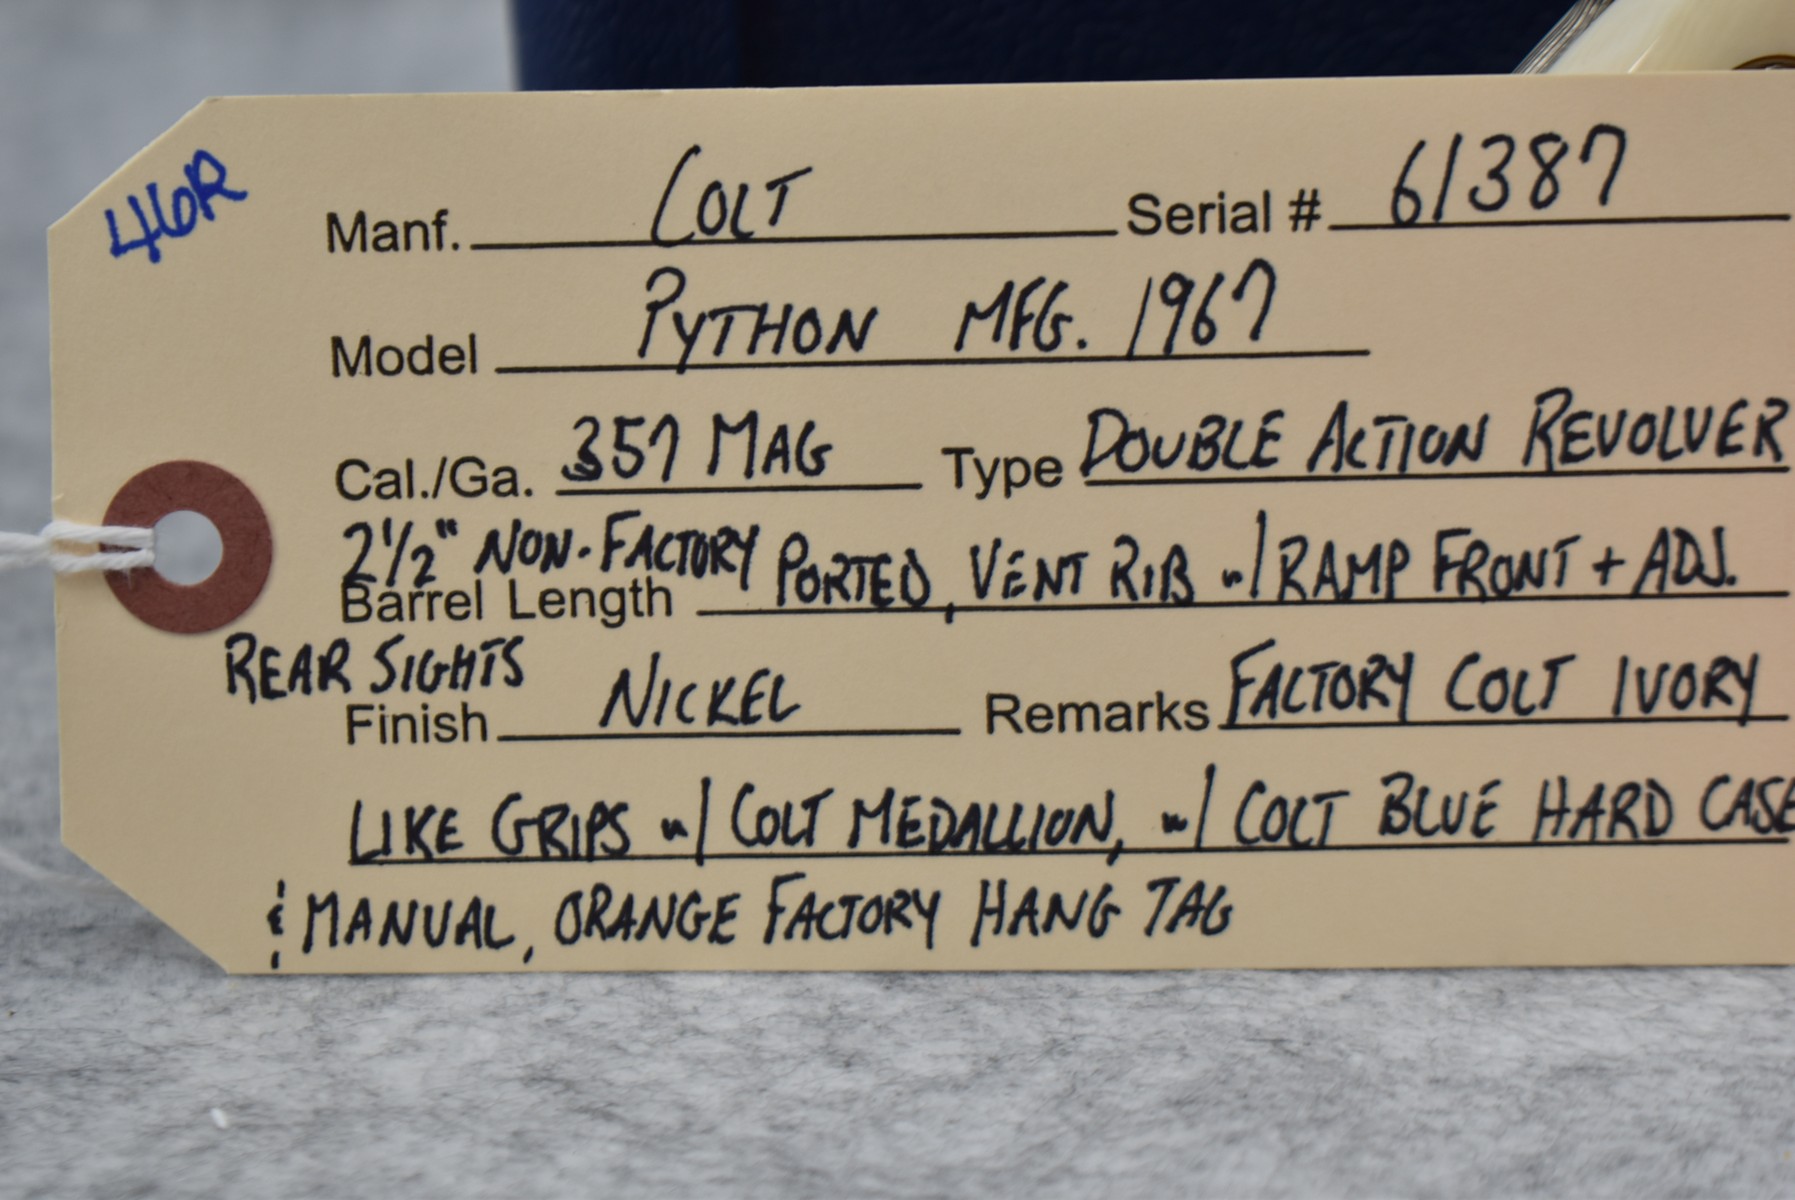 46R
Manf. COLT Serial # 61387
Model PYTHON MFG. 1967
Cal./Ga. 357 MAG Type DOUBLE ACTION REVOLVER
2 1/2" NON-FACTORY PORTED, VENT RIB w/ RAMP FRONT + ADJ.
Barrel Length
REAR SIGHTS
Finish NICKEL Remarks FACTORY COLT IVORY
LIKE GRIPS w/ COLT MEDALLION, w/ COLT BLUE HARD CASE
& MANUAL, ORANGE FACTORY HANG TAG